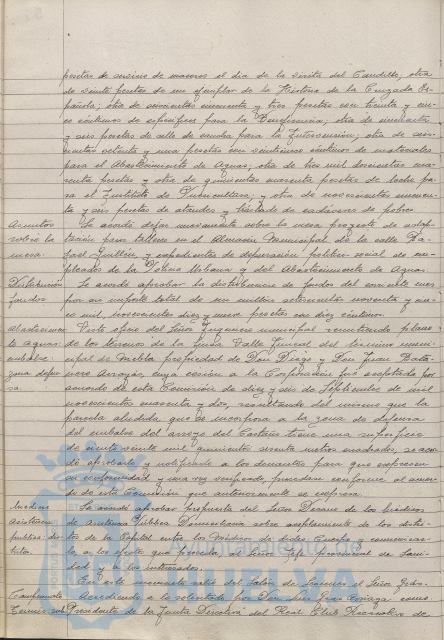 pesetas de encino de maceros el día de la visita del Caudillo; otra
de veinte pesetas de un ejemplar de la Historia de la Cruzada Es-
pañola; otra de seiscientas cincuenta y tres pesetas con treinta y cin-
co céntimos de específicos para la Beneficencia; otra de cincuenta
y seis pesetas de sello de caucho para la Intervención; otra de seis-
cientas ochenta y una pesetas con veinticinco céntimos de materiales
para el Abastecimiento de Aguas; otra de tres mil doscientas cua-
renta pesetas y otra de quinientas cuarenta pesetas de leche pa-
ra el Instituto de Puericultura y otra de novecientas cincuen-
ta y seis pesetas de ataudes y traslado de cadáveres de pobres
Asuntos Se acordó dejar nuevamente sobre la mesa proyecto de adap-
sobre la tación para talleres en el Almacén Municipal de la calle Ra-
mesa. fael Guillén y expedientes de depuración político social de em-
pleados de la Policía Urbana y del Abastecimiento de Aguas.
Distribución Se acordó aprobar la distribución de fondos del corriente mes
fondos por un importe total de un millón setecientos noventa y nue-
ve mil, novecientas diez y nueve pesetas con diez céntimos.
Abastecimien- Visto oficio del Señor Ingeniero municipal remitiendo plano
to aguas. de los terrenos de la finca Valle Juncal del término muni-
embalse cipal de Niebla propiedad de Don Diego y Don Juan
zona defen- Arroyo, cuya cesión a la Corporación fue aceptada por
sa. acuerdo de esta Comisión de diez y seis de Septiembre de mil
novecientos cuarenta y dos, resultando del mismo que la
parcela aludida que se incorpora a la zona de defensa
del embalse del arroyo del Castaño tiene una superficie
de ciento veinte mil quinientos setenta metros cuadrados, se acor-
dó aprobarlo y notificarlo a los donantes para que expresen
su conformidad y una vez verificado, procedase conforme al acuer-
do de esta Comisión que anteriormente se expresa.
Médicos Se acordó aprobar propuesta del Señor Decano de los médicos
Asistencia de Asistencia Pública Domiciliaria sobre acoplamiento de los distri-
pública dis- tos de la Capital entre los Médicos de dicho Cuerpo, comunicar-
tritos. la a los efectos que proceda, al Señor Jefe provincial de Sani-
dad y a los interesados.
En este momento salió del Salón de Sesiones el Señor
Campeonato Accediendo a lo solicitado por Don Luis como
Tennis Presidente de la Junta Directiva del Real Club Recreativo de